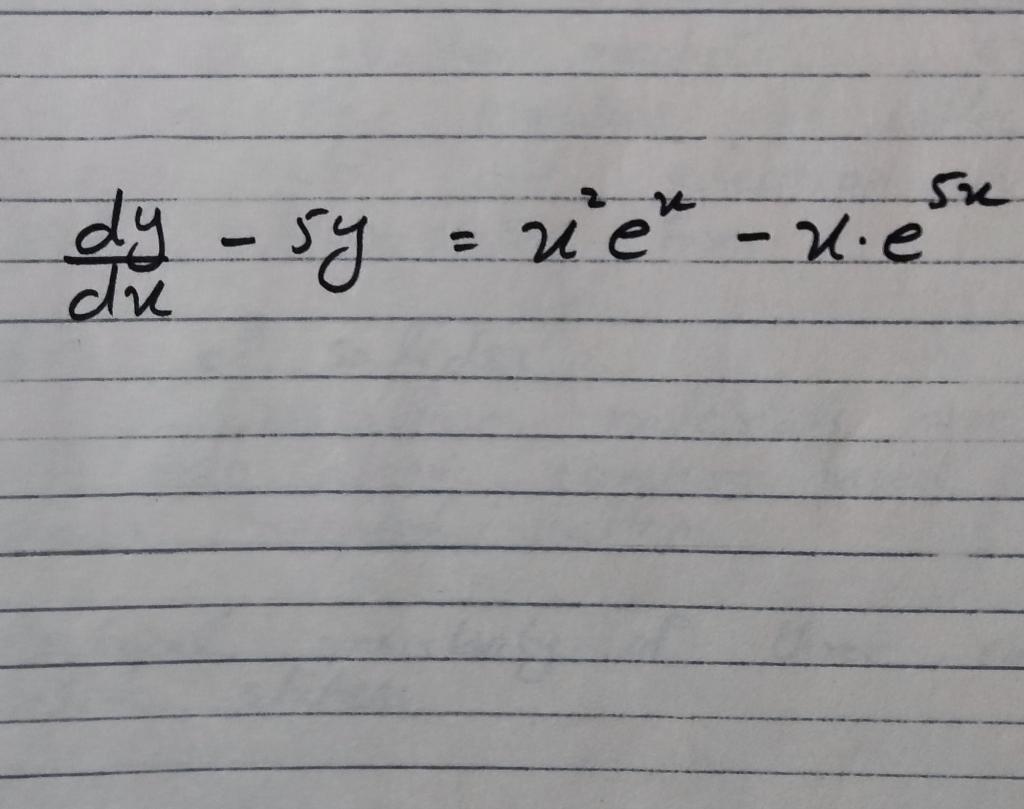 dy/dx - 5y = x²eˣ - x·e⁵ˣ